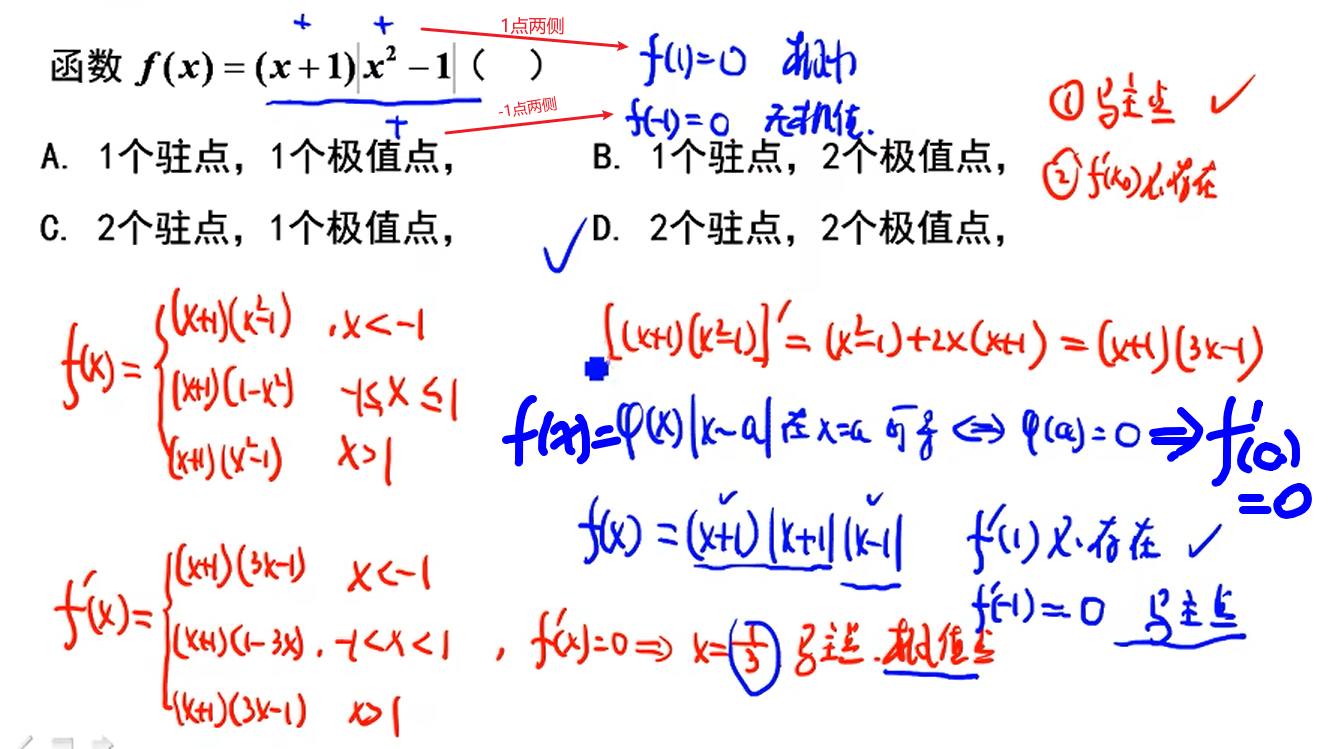 1点两侧
+ +
函数 f(x) = (x+1)|x²−1| ( )
f(1)=0 极小
+
-1点两侧
f(-1)=0 无极值.
① 驻点 ✓
② f'(x₀)不存在
A. 1个驻点，1个极值点，
B. 1个驻点，2个极值点，
C. 2个驻点，1个极值点，
✓ D. 2个驻点，2个极值点，
f(x) = { (x+1)(x²-1) , x<-1
(x+1)(1-x²) -1≤x≤1
(x+1)(x²-1) x>1
[(x+1)(x²-1)]' = (x²-1)+2x(x+1) = (x+1)(3x-1)
f(x)=φ(x)|x-a| 在x=a 可导 ⇔ φ(a)=0 ⇒ f'(a)=0
f(x) = (x+1)|x+1||x-1| f'(1)不存在 ✓
f'(-1)=0 驻点
f'(x) = { (x+1)(3x-1) x<-1
(x+1)(1-3x), -1<x<1 , f'(x)=0 ⇒ x=1/3 驻点.极值点
(x+1)(3x-1) x>1